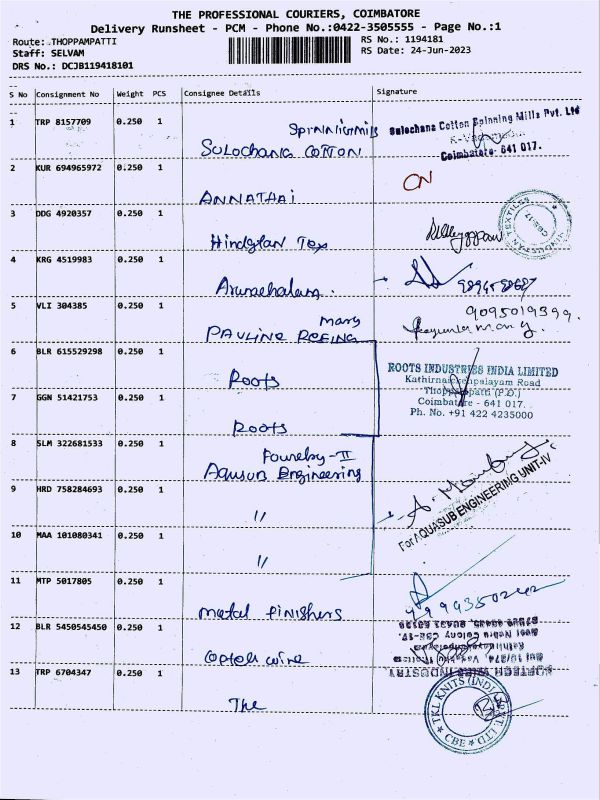 THE PROFESSIONAL COURIERS, COIMBATORE
Delivery Runsheet - PCM - Phone No.:0422-3505555 - Page No.:1
Route: THOPPAMPATTI
Staff: SELVAM
DRS No.: DCJB119418101
RS No.: 1194181
RS Date: 24-Jun-2023
S No Consignment No Weight PCS Consignee Details Signature
1 TRP 8157709 0.250 1
SULOCHANA COTTON
Sulochana Cotton Spinning Mills Pvt. Ltd
Coimbatore- 641 017.
2 KUR 694965972 0.250 1
ANNATHAI
CN
3 DDG 4920357 0.250 1
Hindustan Tex
4 KRG 4519983 0.250 1
Arunachalam.
5 VLI 304385 0.250 1
mary
PAULINE
9095019399.
6 BLR 615529298 0.250 1
Roots
ROOTS INDUSTRIES INDIA LIMITED
Kathirnaickenpalayam Road
Thoppampatti (P.O.)
Coimbatore - 641 017.
Ph. No. +91 422 4235000
7 GGN 51421753 0.250 1
Roots
8 SLM 322681533 0.250 1
Foundry-II
Aqusub Engineering
9 HRD 758284693 0.250 1
"
For AQUASUB ENGINEERING UNIT-IV
10 MAA 101080341 0.250 1
"
11 MTP 5017805 0.250 1
metal finishers
12 BLR 5450545450 0.250 1
wire
13 TRP 6704347 0.250 1
The
TKL KNITS (INDIA) PVT. LTD
CBE